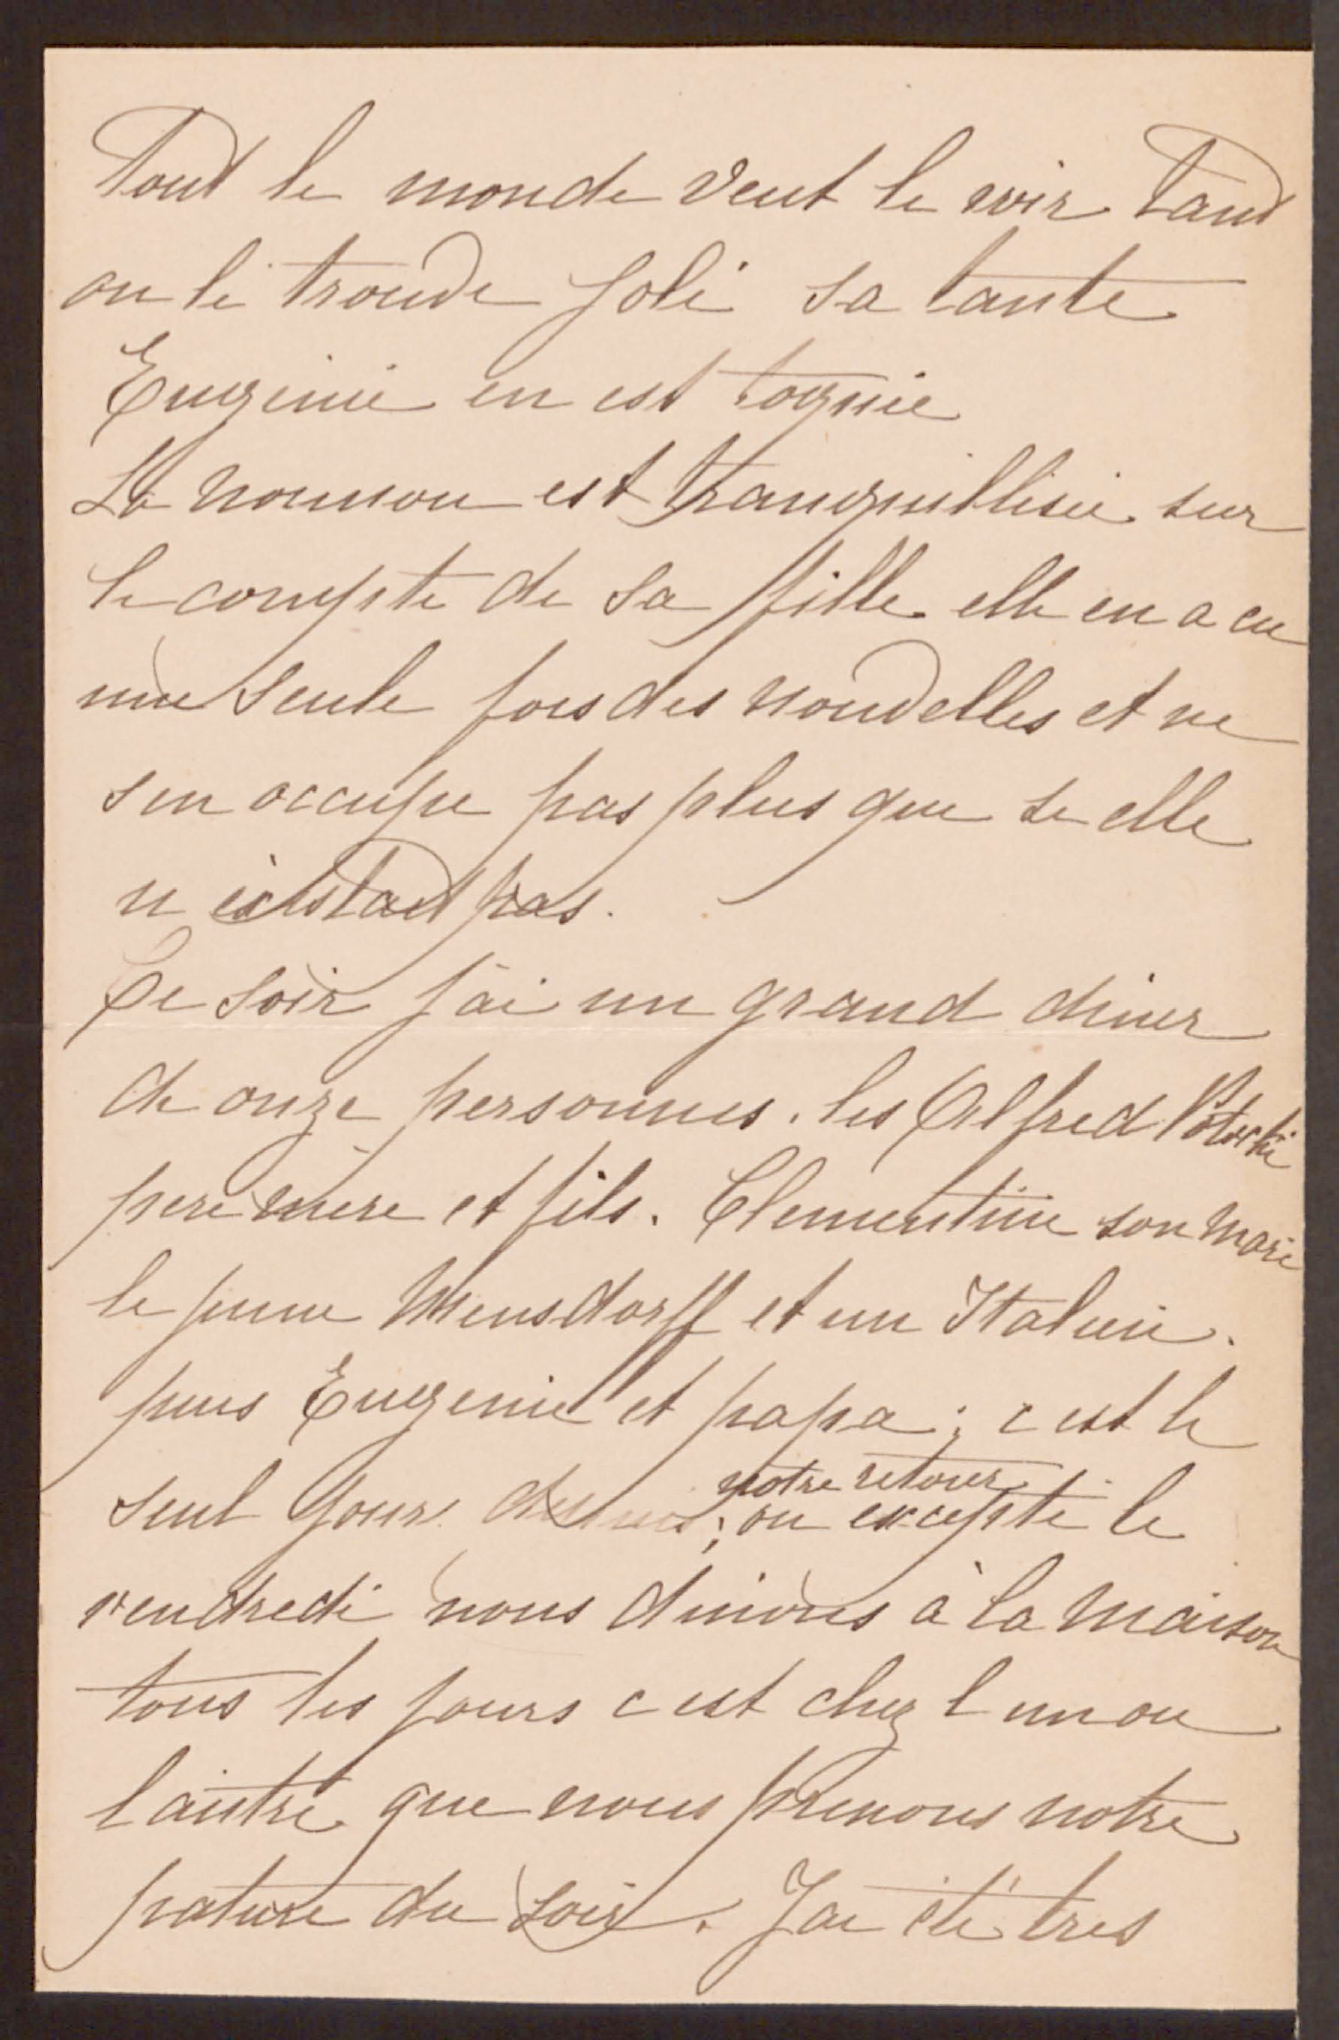 Tout le monde veut le voir tant
on le trouve joli sa tante
Eugenie en est toquée
La nounou est tranquillisée sur
le compte de sa fille elle en a eu
une seule fois des nouvelles et ne
s en occupe pas plus que si elle
n existait pas.
Ce soir j'ai un grand diner
de onze personnes. les Alfred Potocki
pere mère et fils. Clementine son mari
le jeune Mensdorff et un Italien.
puis Eugenie et papa; c est le
seul jour depuis notre retour ou excepté le
vendredi nous dinons à la maison
tous les jours c est chez l un ou
l autre que nous prenons notre
pature du soir. J ai été tres